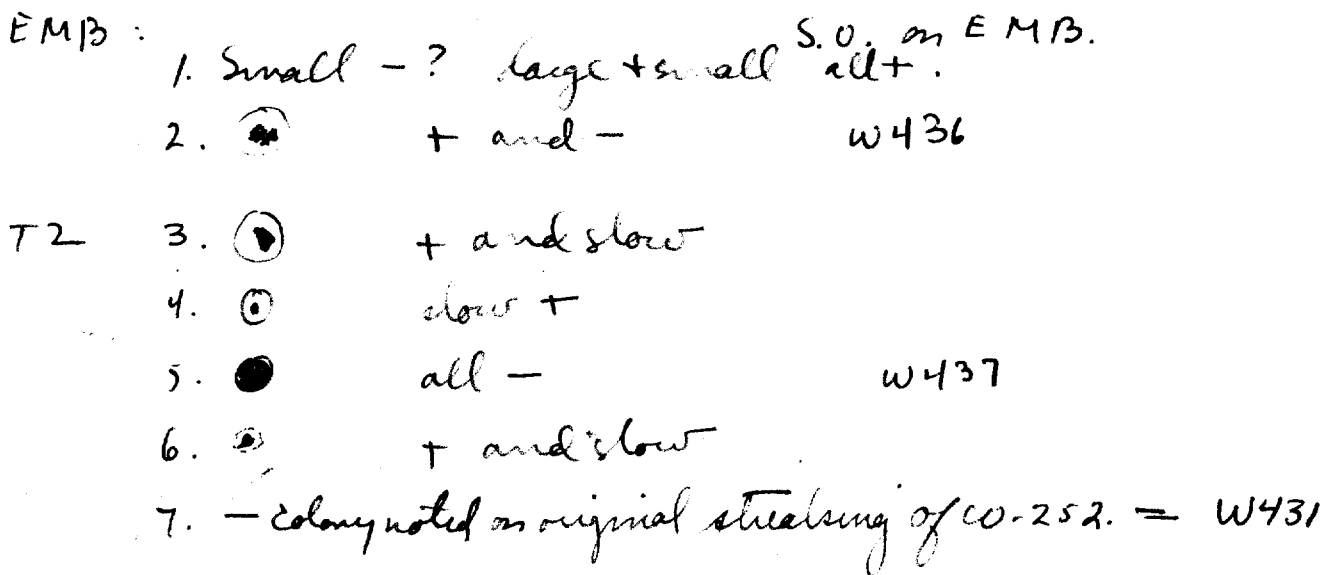 EMB :
S.O. on EMB.
1. Small - ? large + small all +.
2. + and - W436
T2 3. + and slow
4. slow +
5. all - W437
6. + and slow
7. - colony noted on original streaking of W-252. = W431